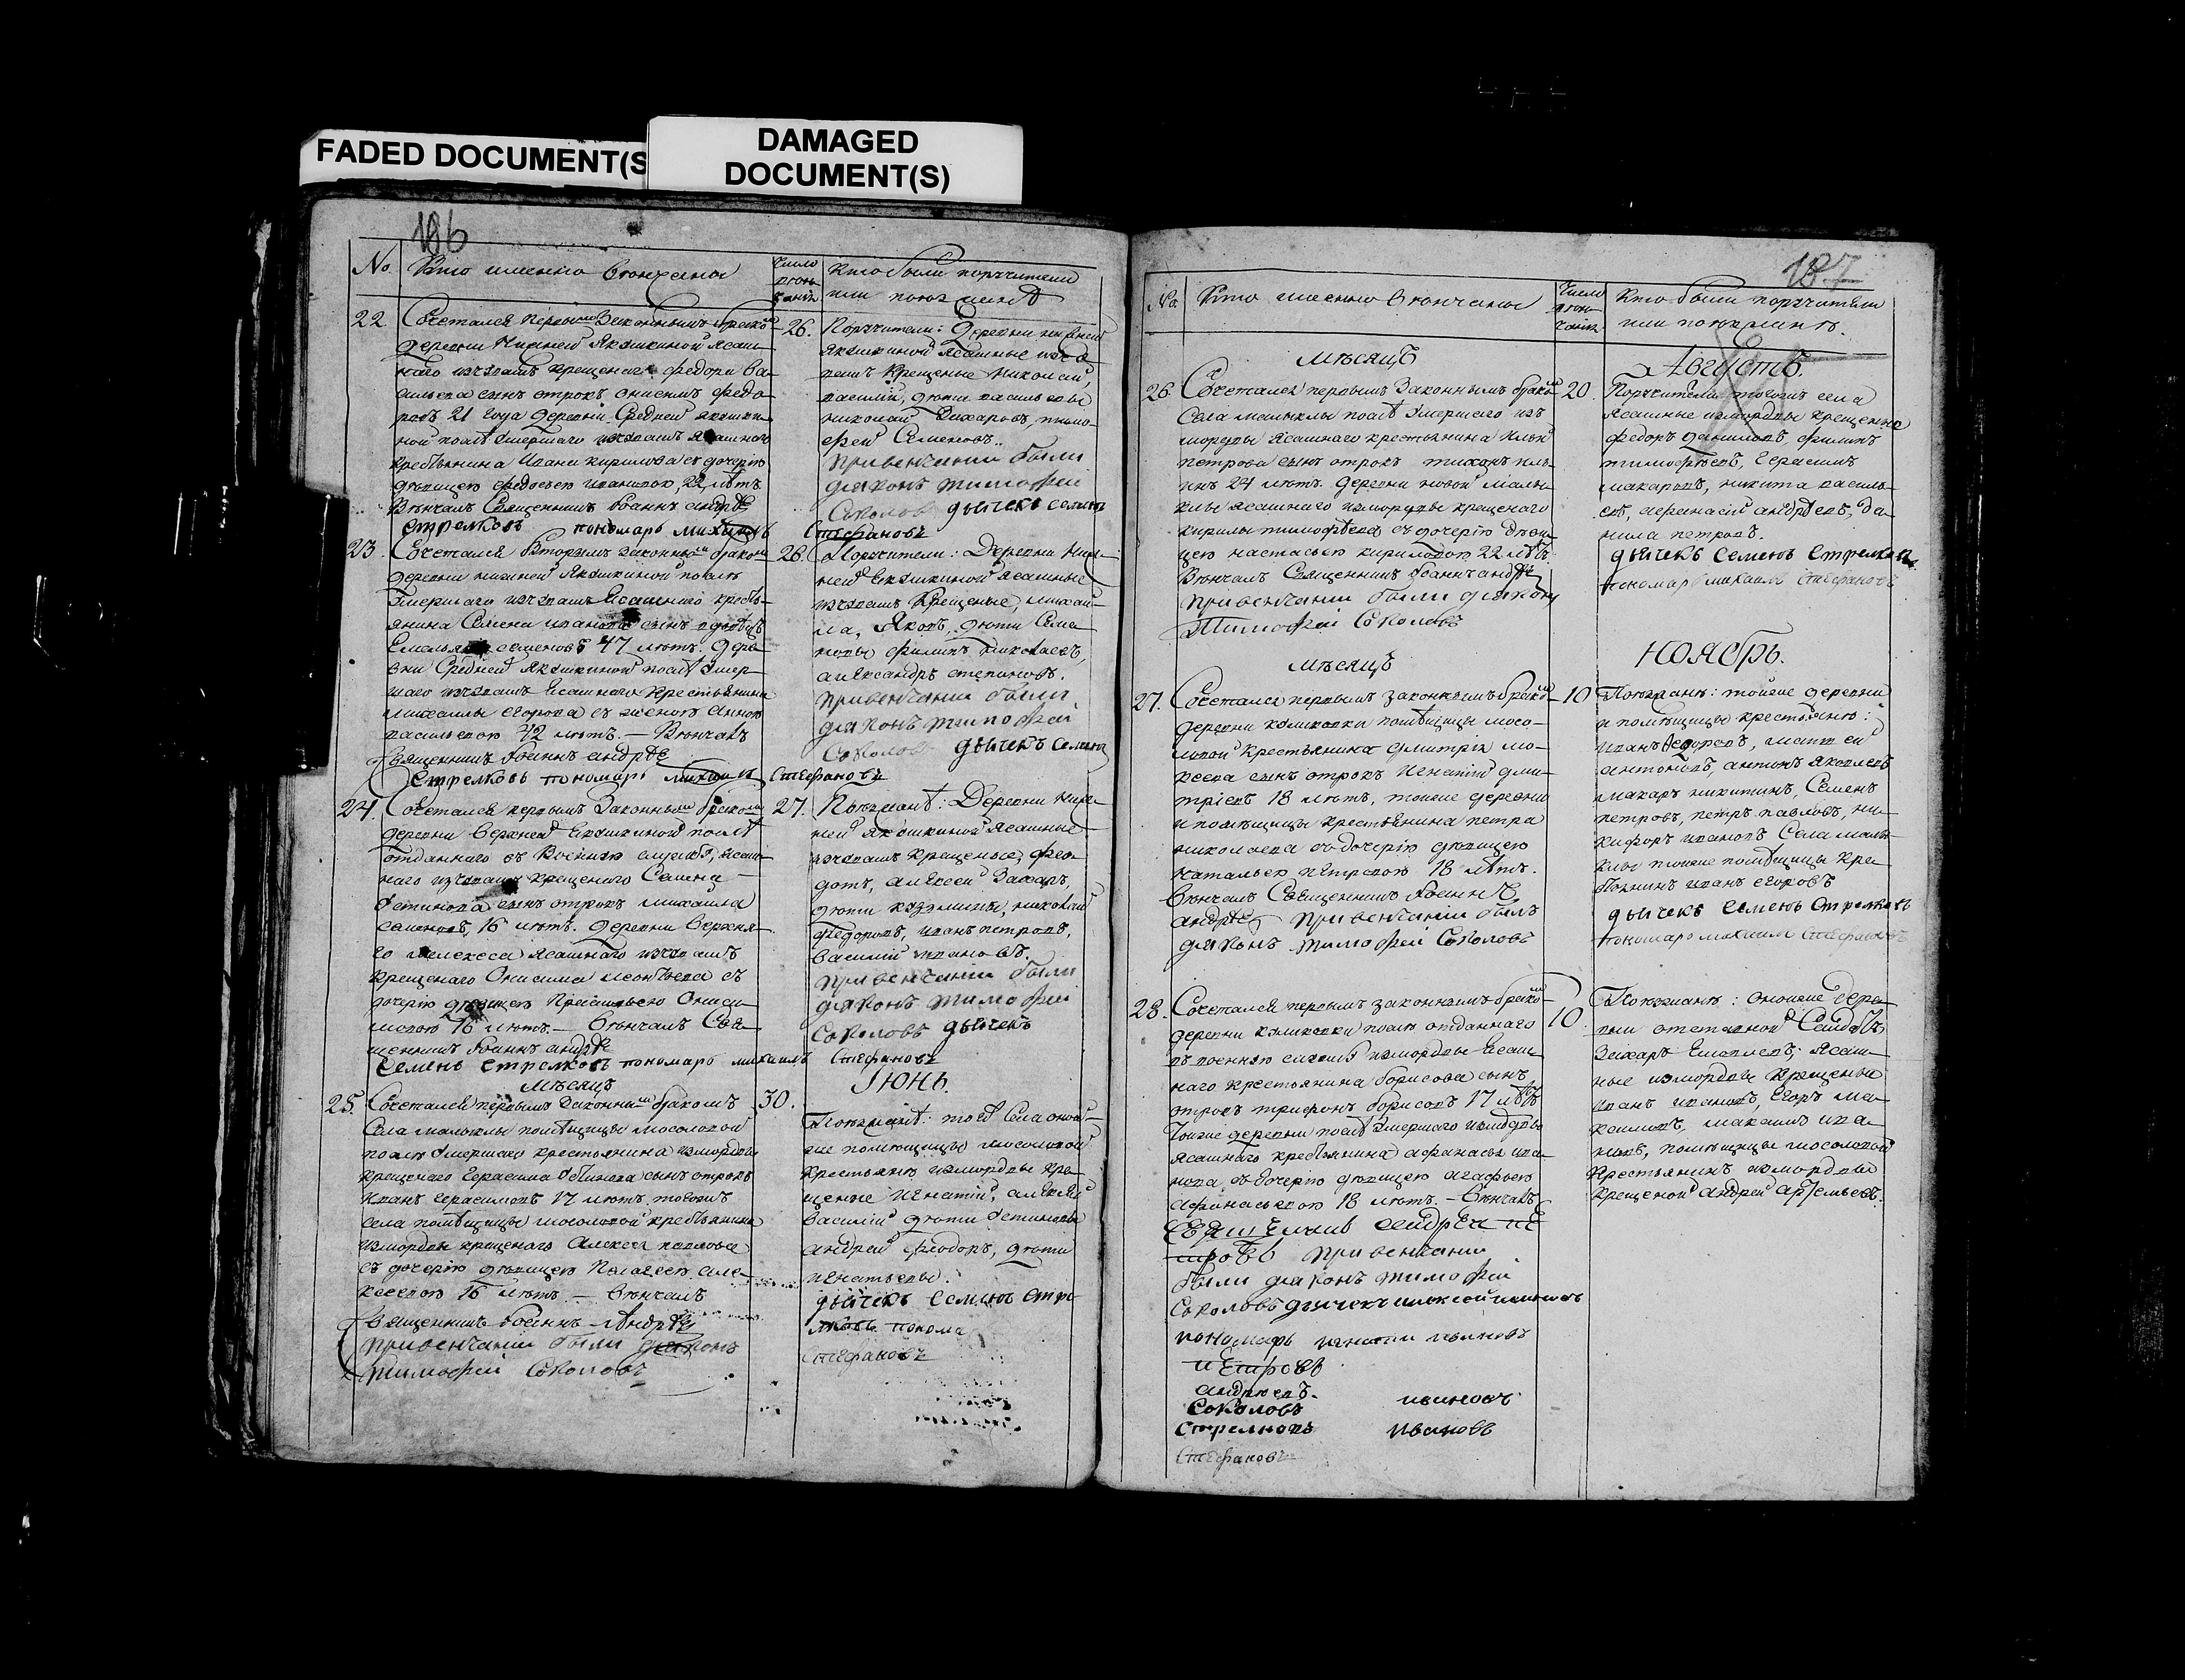 FADED DOCUMENT(S
DAMAGED
DOCUMENT(S)
186
No. Кто именно венчаны
Число
венчанія
Кто были поручители
или поезжанѣ
22. Сочетался первымъ законнымъ бракомъ
деревни Нижней Якушкиной ясаш-
наго изчувашъ крещенаго Федора Ва-
сильева сынъ отрокъ Онисимъ Федо-
ровъ 21 года деревни Средней Якушки-
ной послѣ умершаго изчувашъ ясашного
крестьянина Ивана Кирилова съ дочерію
дѣвицею Федосьею Ивановою, 22 лѣтъ
Вѣнчалъ Священникъ Іоаннъ Андрѣе
Стрелковъ пономарь Михаилъ
26. Поручители: Деревни нижней
Якушкиной ясашные изчу
вашъ крещеные Николай,
Василій, дѣти Васильевы
Николай Захаровъ, Тимо-
фей Семеновъ.
привенчании были
дияконъ Тимофей
Соколовъ дьячекъ Семенъ
Стефановъ
23. Сочетался вторымъ законнымъ бракомъ
деревни нижней Якушкиной послѣ
умершаго изчувашъ ясашнаго кресть-
янина Семена Иванова сынъ вдовецъ
Емельянъ Семеновъ 47 лѣтъ. дере-
вни Средней Якушкиной послѣ умер-
шаго изчувашъ ясашнаго крестьянина
Михаилы Егорова съ женою Анною
Васильевою 42 лѣтъ. — Вѣнчалъ
Священникъ Іоаннъ Андрѣе
Стрелковъ пономарь Михаилъ
26. Поручители: Деревни Ниж-
ней Якушкиной ясашные
изчувашъ крещеные, Михай-
ла, Яковъ, дѣти Семе-
новы Филипъ Николаевъ,
Александръ Степановъ.
привенчании были
дияконъ Тимофей
Соколовъ дьячекъ Семенъ
Стефановъ
24. Сочетался первымъ законнымъ бракомъ
деревни Верхней Якушкиной послѣ
отданнаго въ военную службу, ясаш-
наго изчувашъ крещенаго Семена
Устинова сынъ отрокъ Михаила
Семеновъ, 16 лѣтъ. деревни Верхня-
го Мелекеса ясашнаго изчувашъ
крещенаго Онисима Леонтьева съ
дочерію дѣвицею Прасковьею Ониси-
мовою 16 лѣтъ. — Вѣнчалъ Свя-
щенникъ Іоаннъ Андрѣе
Семенъ Стрелковъ пономарь Михаилъ
27. Поезжанѣ: Деревни Ниж-
ней Якушкиной ясашные
изчувашъ крещеные, Фео-
дотъ, Алексей Захаръ,
дѣти Кузмины, Николай
Федоровъ, Иванъ Петровъ,
Василій Ивановъ.
привенчании были
дияконъ Тимофей
Соколовъ дьячекъ
Стефановъ
мѣсяцъ
Іюнь.
25. Сочетался первымъ законнымъ бракомъ
Села Малыклы помѣщицы Мосоловой
послѣ умершаго крестьянина измордвы
крещенаго Герасима Устинова сынъ отрокъ
Иванъ Герасимовъ 17 лѣтъ, тогожъ
села помѣщицы Мосоловой крестьянина
измордвы крещенаго Алексея Павлова
съ дочерію дѣвицею Пелагеею Але-
ксеевою 16 лѣтъ. — Вѣнчалъ
Священникъ Іоаннъ Андрѣе
привенчании были дияконъ
Тимофей Соколовъ
30.
Поезжанѣ: той Села оной-
же помѣщицы Мосоловой
крестьянѣ измордвы кре-
щеные Игнатій, Алексей
Василій дѣти Устиновы
Андрей Феодоръ, дѣти
Игнатьевы.
дьячекъ Семенъ Стре
лковъ понома
Стефановъ
187
No. Кто именно вѣнчаны
Число
вѣнчанія
Кто были поручители
или поезжанѣ.
мѣсяцъ
Августъ.
26. Сочетался первымъ законнымъ бракомъ
Села Малыклы послѣ умершаго изъ
мордвы ясашнаго крестьянина Ильи
Петрова сынъ отрокъ Тихонъ Иль-
инъ 24 лѣтъ. деревни новой Малы-
клы ясашнаго измордвы крещенаго
Кирилы Тимофѣева съ дочерію дѣви-
цею Настасьею Кириловою 22 лѣтъ
Вѣнчалъ Священникъ Іоаннъ Андрѣе
привенчании были дияконъ
Тимофей Соколовъ
20. Поручители тогожъ села
ясашные измордвы крещеные
Федоръ Даниловъ, Филипъ
Тимофѣевъ, Герасимъ
Макаровъ, Никита Василь-
евъ, Афанасій Андрѣевъ, Да-
нила Петровъ.
дьячекъ Семенъ Стрелковъ
пономарь Михаилъ Стефановъ
мѣсяцъ
Ноябрь.
27. Сочетался первымъ законнымъ бракомъ
деревни помѣщицы Мосо-
ловой крестьянина Дмитрія Мо-
кеева сынъ отрокъ Игнатій Дми-
тріевъ 18 лѣтъ, тойже деревни
и помѣщицы крестьянина Петра
Николаева съ дочерію дѣвицею
Натальею Петровою 18 лѣтъ.
Вѣнчалъ Священникъ Іоаннъ
Андрѣе привенчании былъ
дияконъ Тимофей Соколовъ
10 Поезжанѣ: тойже деревни
и помѣщицы крестьянѣ:
Иванъ Федоровъ, Матвей
Антоновъ, Антонъ Яковлевъ
Макаръ Никитинъ, Семенъ
Петровъ, Петръ Павловъ, Ни-
кифоръ Ивановъ Села Малы-
клы тойже помѣщицы кре-
стьянинъ Иванъ Егоровъ
дьячекъ Семенъ Стрелковъ
пономарь Михаилъ Стефановъ
28. Сочетался первымъ законнымъ бракомъ
деревни послѣ отданнаго
въ военную службу измордвы ясаш-
наго крестьянина Борисова сынъ
отрокъ Трифонъ Борисовъ 17 лѣтъ
Тоиже деревни послѣ умершаго измордвы
ясашнаго крестьянина Афанасья Ива-
нова, съ дочерію дѣвицею Агафьею
Афанасьевою 18 лѣтъ. — Вѣнчалъ
Священникъ Андрей Пе
тровъ привенчании
были дияконъ Тимофей
Соколовъ дьячекъ Алексей
пономарь Игнатий Ивановъ
Петровъ
Андрѣевъ.
Соколовъ Ивановъ
Стрелковъ Ивановъ
Стефановъ
10.
Поезжанѣ: оноиже дере-
вни отставной Солдатъ
Захаръ ясаш-
ные измордвы крещеные
Иванъ Ивановъ, Егоръ Ма-
ксимовъ, Максимъ Ива-
новъ, помѣщицы Мосоловой
крестьянинъ измордвы
крещеной Андрей Артемьевъ.